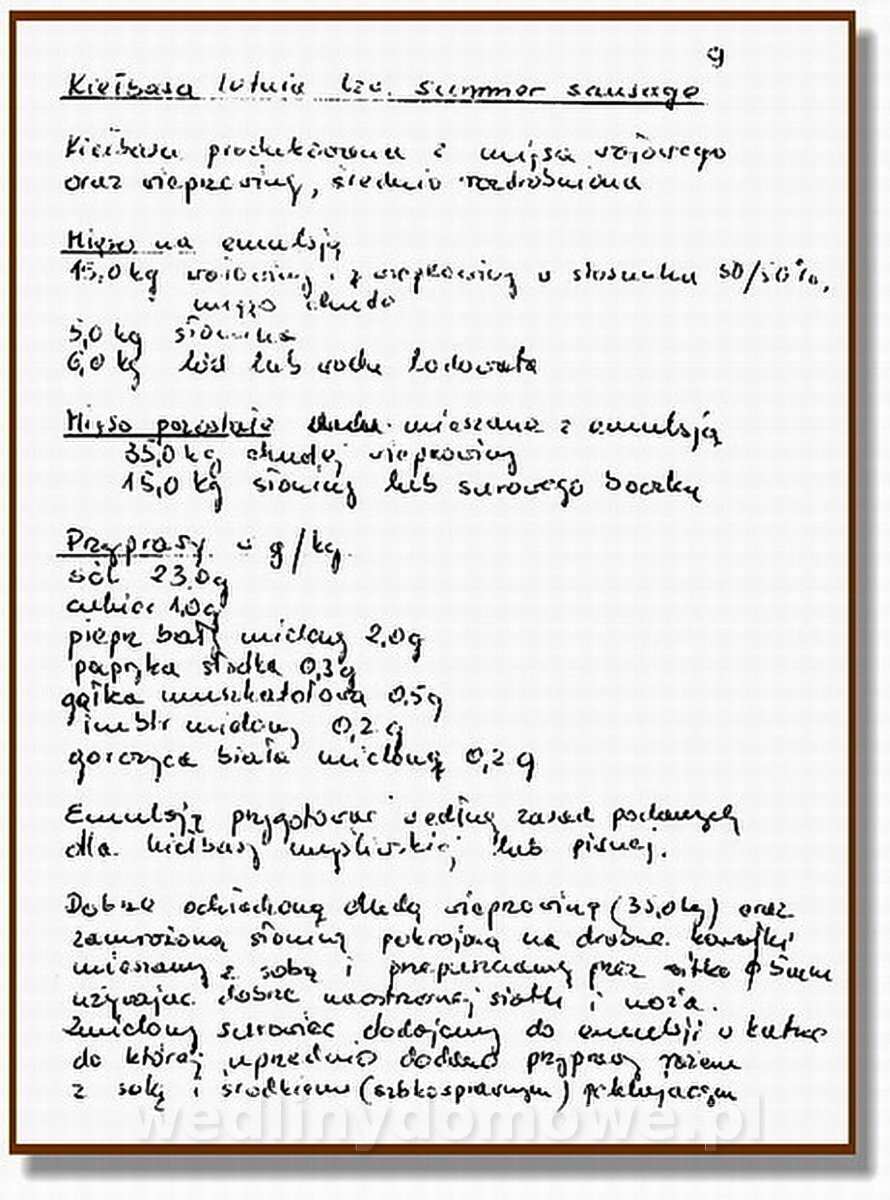 9
Kiełbasa letnia tzw. summer sausage
Kiełbasa produkowana z mięsa wołowego
oraz wieprzowiny, średnio rozdrobniona
Mięso na emulsję
15,0 kg wołowiny i wieprzowiny w stosunku 50/50%,
mięso chude
5,0 kg słonina
6,0 kg lód lub woda lodowata
Mięso pozostałe mieszane z emulsją
35,0 kg chudej wieprzowiny
15,0 kg słoniny lub surowego boczku
Przyprawy - g/kg.
sól 23,0g
cukier 1,0g
pieprz biały mielony 2,0g
papryka słodka 0,3g
gałka muszkatołowa 0,5g
imbir mielony 0,2 g
gorczyca biała mielona 0,2 g
Emulsję przygotować według zasad podanych
dla kiełbasy myśliwskiej lub piwnej.
Dobrze schłodzoną chudą wieprzowinę (35,0 kg) oraz
zamrożoną słoninę pokrojoną na drobne kawałki
mieszamy z sobą i przepuszczamy przez sitko ϕ 5mm
używając dobrze naostrzonej siatki i noża.
Zmielony surowiec dodajemy do emulsji w kutrze
do której uprzednio dodano przyprawy razem
z solą i środkiem (szybkosprawnym) peklującym
wedlinydomowe.pl